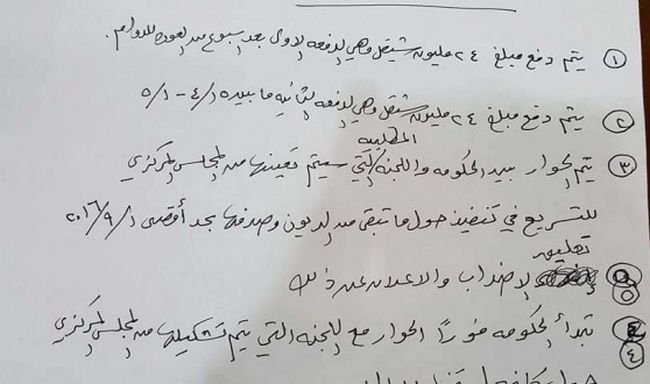 ① يتم دفع مبلغ ٢٤ مليون شيقل وهي الدفعه الاولى بعد اسبوع من العوده للدوام.
② يتم دفع مبلغ ٢٤ مليون شيقل وهي الدفعه الثانيه ما بين ١/٤ - ١/٥
المطلبيه
③ يتم الحوار بين الحكومه واللجنه التي سيتم تعينها من المجلس المركزي
للتسريع في تنفيذ حول ما تبقى من الديون وصرفها بحد أقصى ١/٩/٢٠١٦
تعليق
⑤ الإضراب والاعلان عن ذلك
④ تبدأ الحكومه فورًا الحوار مع اللجنه التي يتم تشكيلها من المجلس المركزي
حول